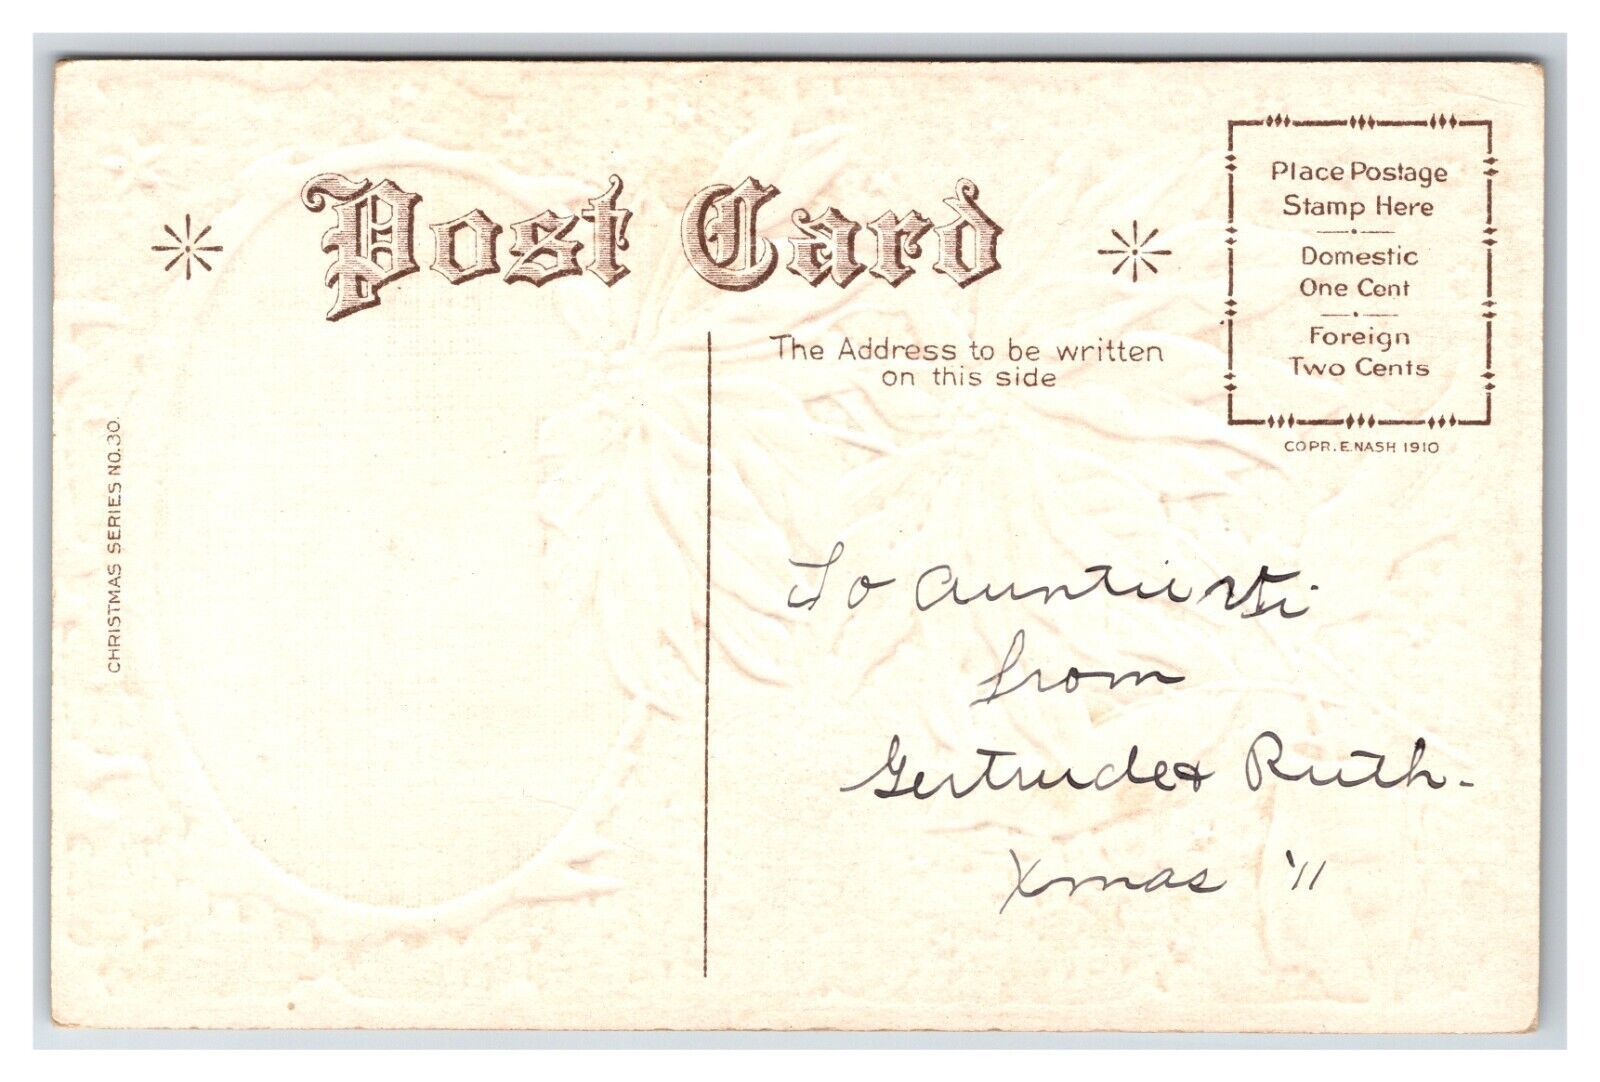 Post Card
Place Postage
Stamp Here
Domestic
One Cent
Foreign
Two Cents
COPR. E. NASH 1910
The Address to be written
on this side
CHRISTMAS SERIES NO. 30.
To Auntie Vi.
from
Gertrude & Ruth.
Xmas '11